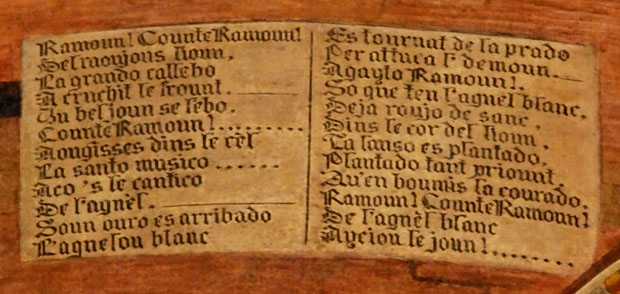 Ramoun! Counte Ramoun!
Del raoujous lioun.
La grando callebo
A cruchit le frount.
Un bel joun se lebo.
Counte Ramoun!.........
Aougisses dins le cèl
La santo musico ......
Aco 's le cantico
De l'agnèl.
Soun ouro es arribado
L'agnelou blanc
Es tournat de la prado
Per attuca l' demoun.
Agayto Ramoun!.
So que ten l'agnèl blanc,
Dejà roujo de sanc.
Dins le cor del lioun.
La lanso es plantado,
Plantado tant priount
Qu'en boumis la courado.
Ramoun! Counte Ramoun!
De l'agnèl blanc
Ayciou le joun!.........